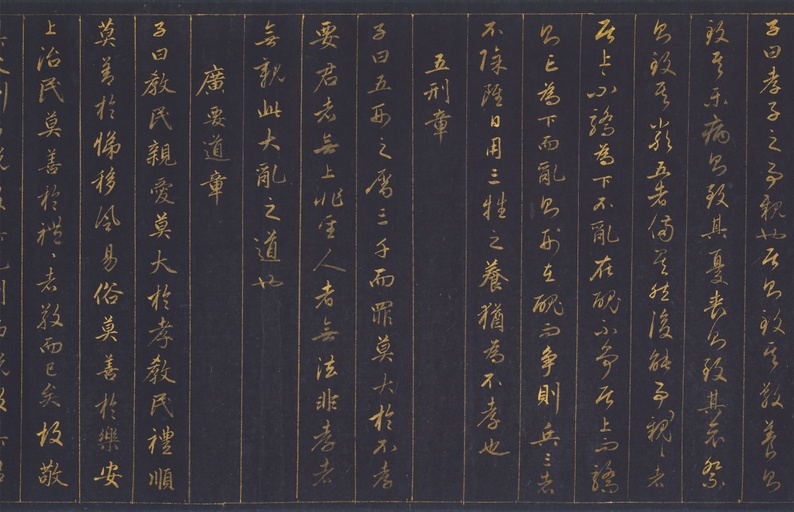 子曰孝子之事親也居則致其敬養則
致其樂病則致其憂喪則致其哀祭
則致其嚴五者備矣然後能事親〻者
居上不驕為下不亂在醜不爭居上而驕
則亡為下而亂則刑在醜而爭則兵三者
不除雖日用三牲之養猶為不孝也
五刑章
子曰五刑之屬三千而罪莫大於不孝
要君者無上非聖人者無法非孝者
無親此大亂之道也
廣要道章
子曰教民親愛莫大於孝教民禮順
莫善於悌移風易俗莫善於樂安
上治民莫善於禮〻者敬而已矣故敬